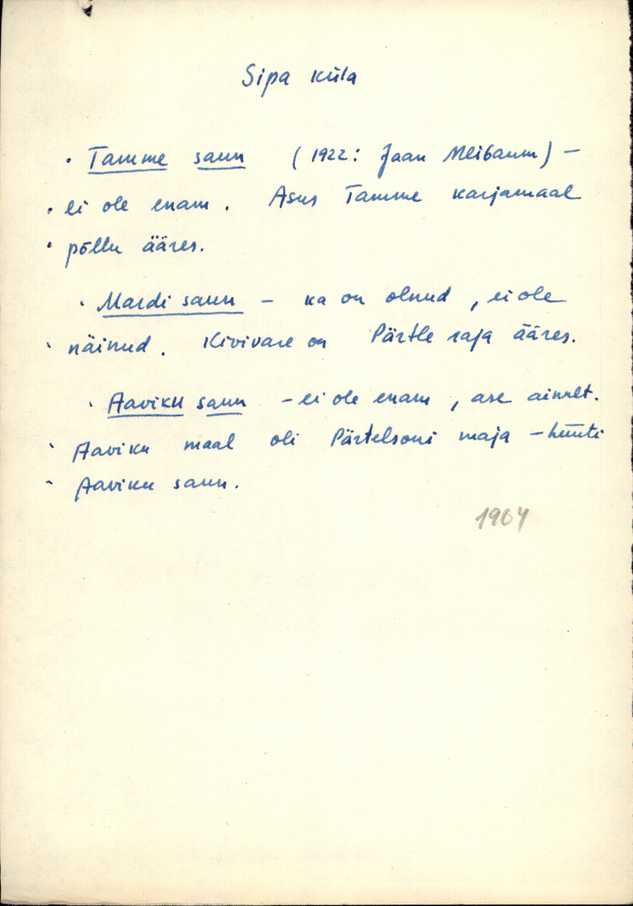 Sipa küla
Tamme saun (1922: Jaan Meibaum) –
ei ole enam. Asus Tamme karjamaal
põllu ääres.
Mardi saun – ka on olnud, ei ole
näinud. Kivivare on Pärtle raja ääres.
Aaviku saun – ei ole enam, ase ainult.
Aaviku maal oli Pärtelsoni maja – hüüti
Aaviku saun.
1964